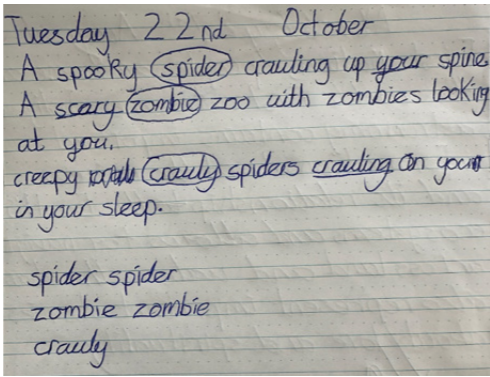 Tuesday 22nd October
A spooky spider crauling up your spine.
A scary zombie zoo with zombies looking
at you.
creepy crauly spiders crauling on your
in your sleep.
spider spider
zombie zombie
crauly